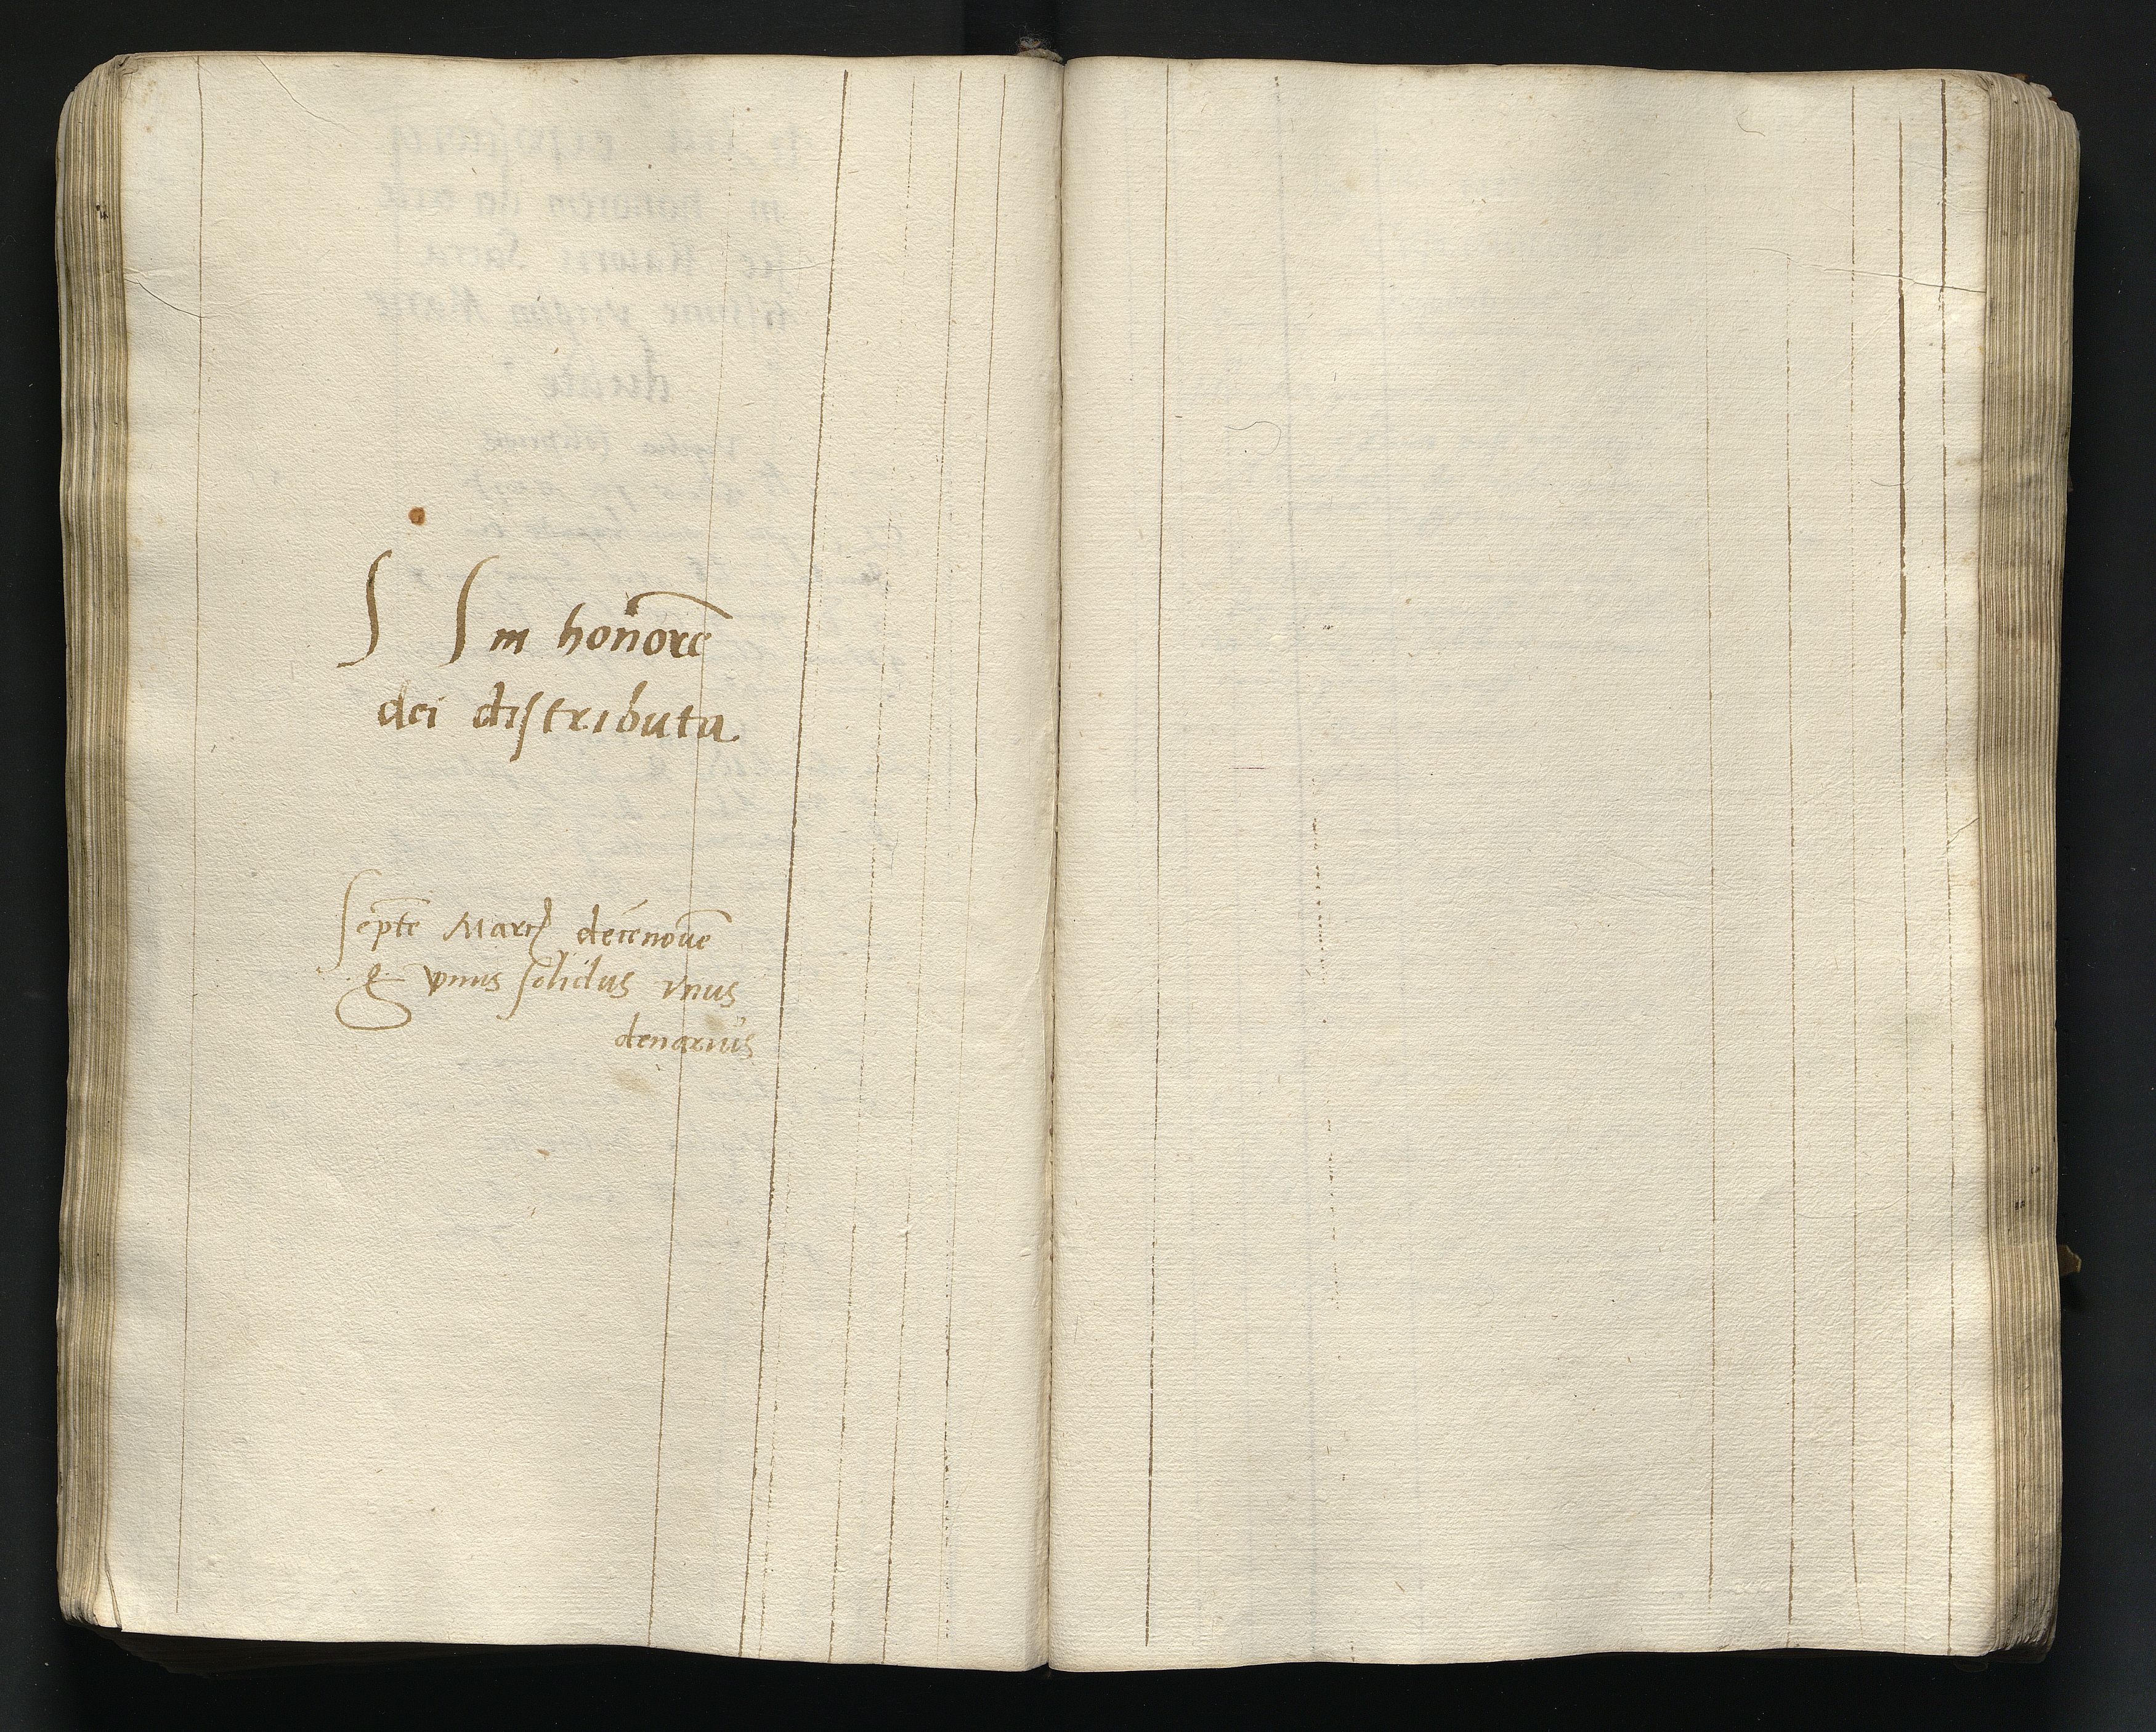 S S in honorē
dei distributa
Septē Marcȝ decēnouē
& vnus solidus vnus
denarius